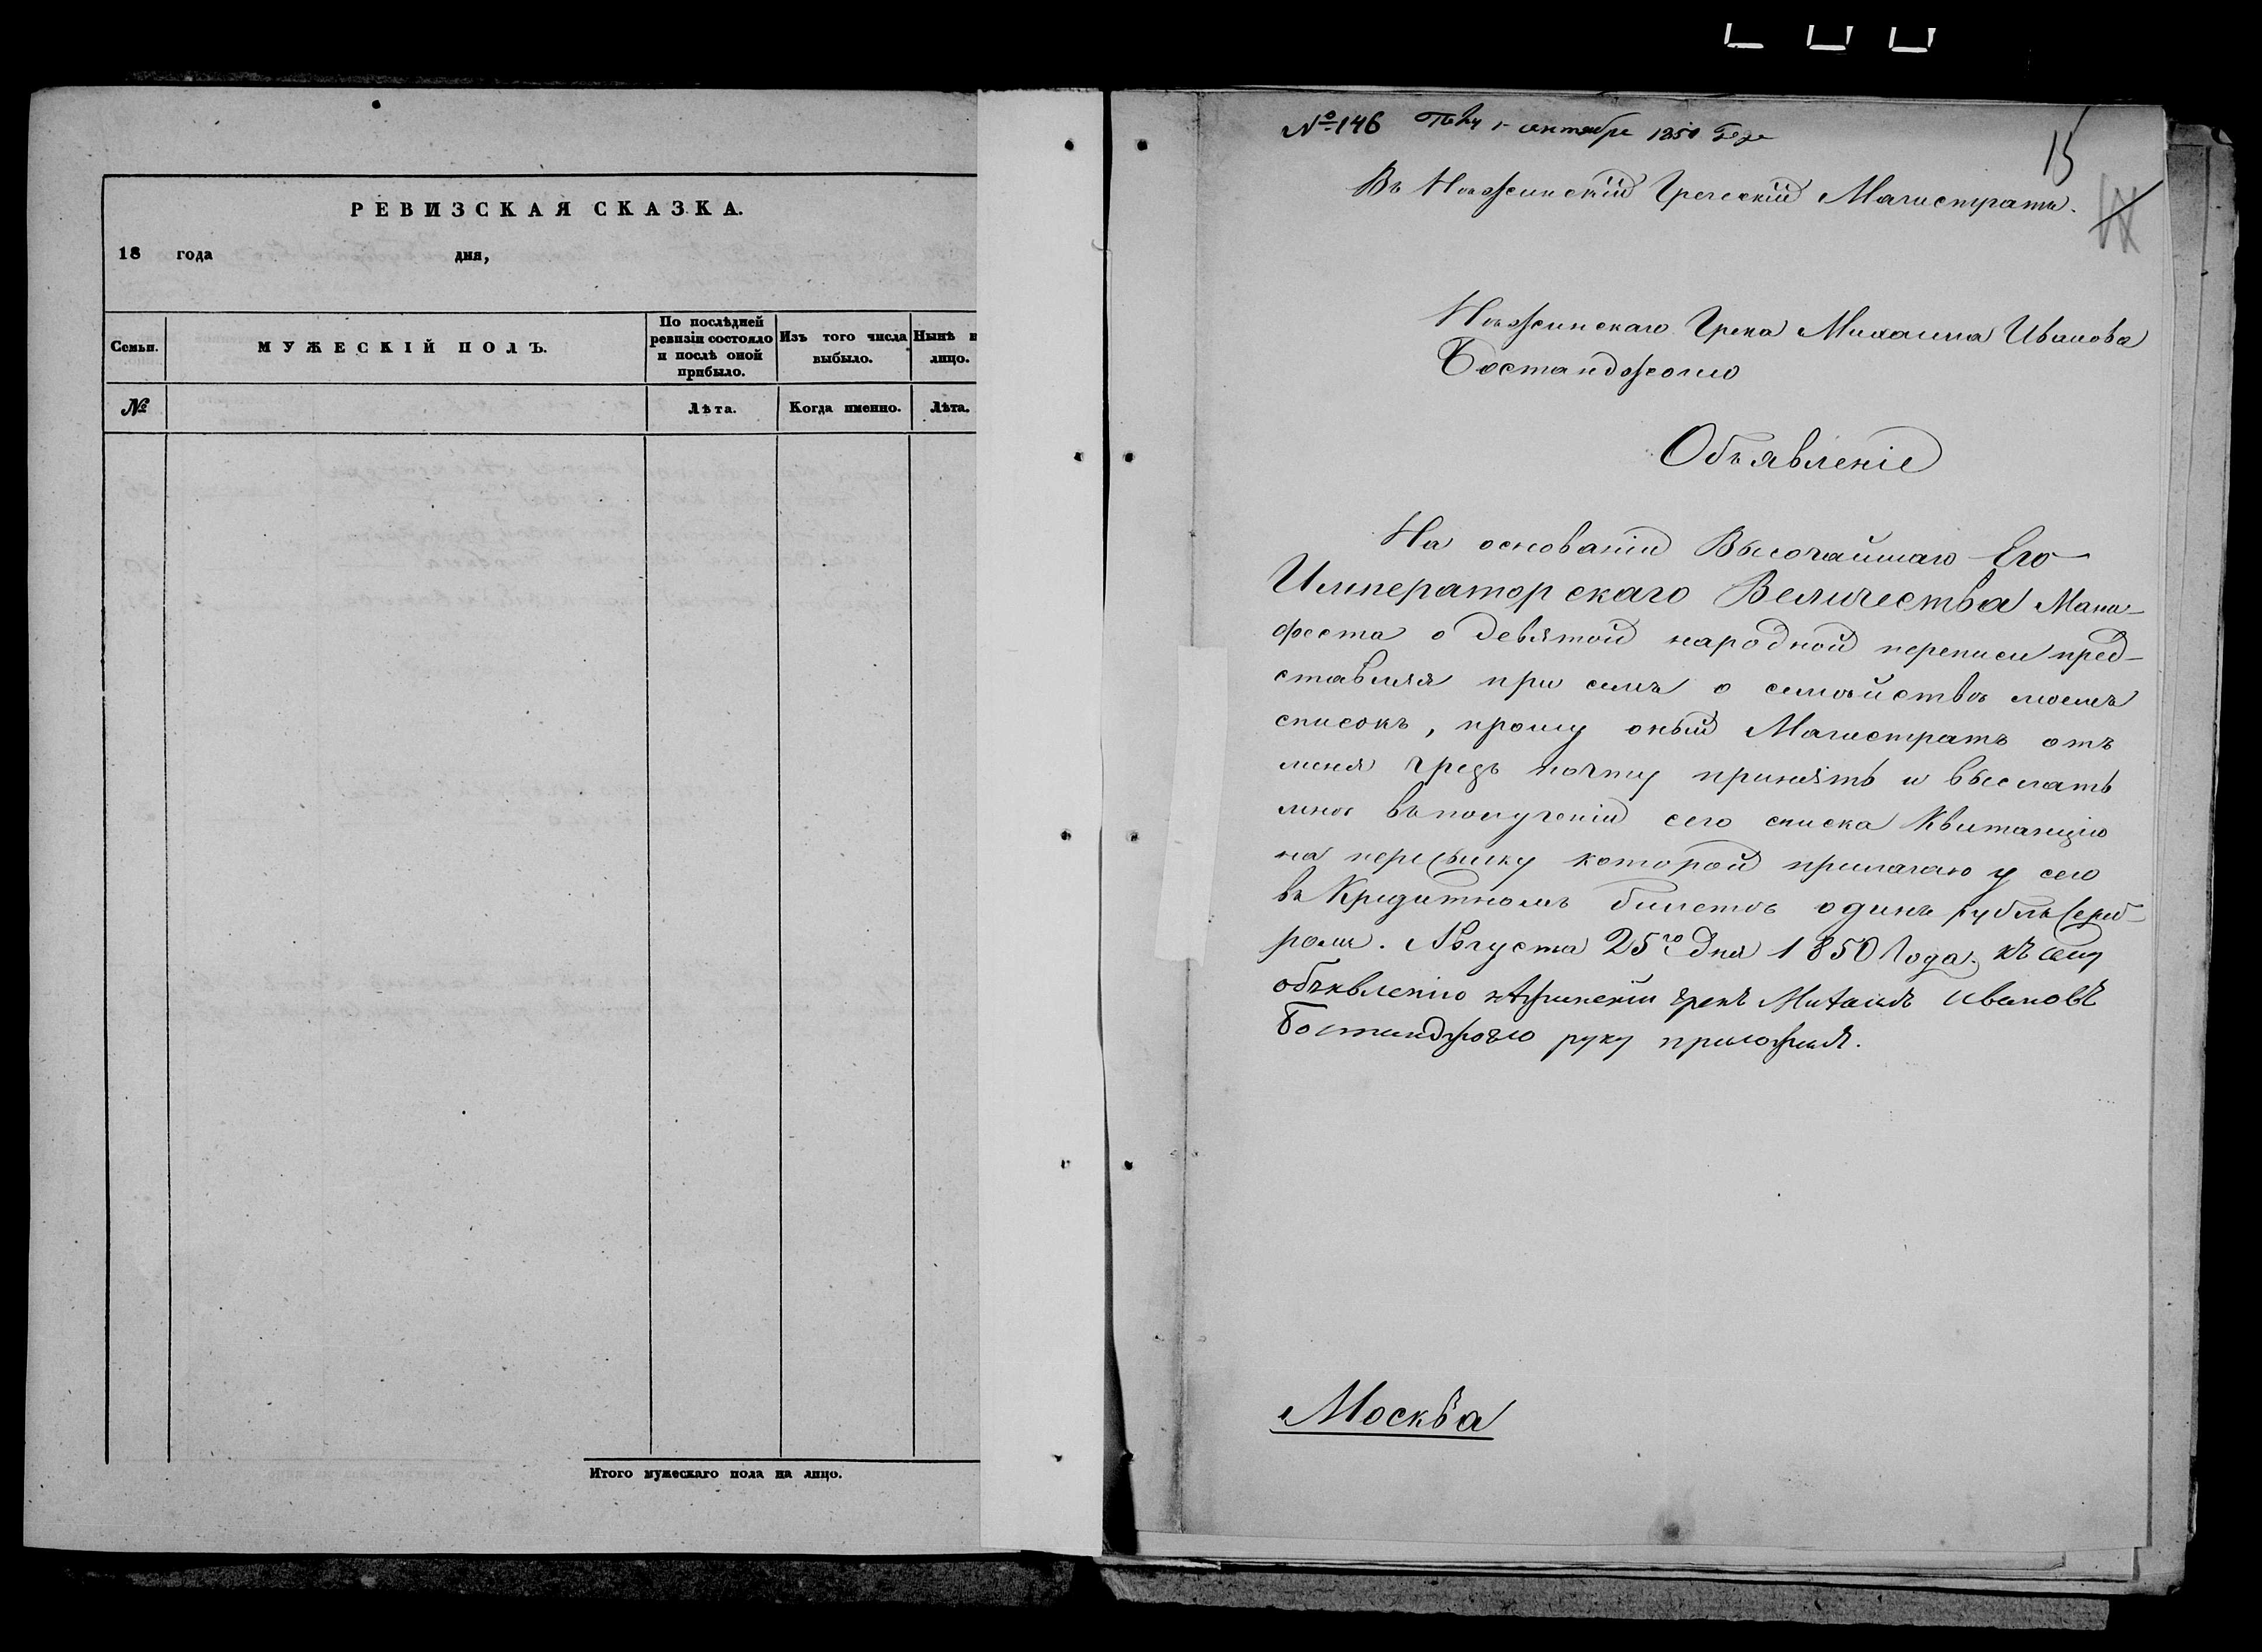 РЕВИЗСКАЯ СКАЗКА.
18 года дня,
Семьи.
МУЖЕСКІЙ ПОЛЪ.
По послѣдней
ревизіи состояло
и послѣ оной
прибыло.
Изъ того числа
выбыло.
Нынѣ н
лицо.
№
Лѣта.
Когда именно.
Лѣта.
Итого мужескаго пола на лицо.
№ 146 1 сентября 1850 Года
15
Въ Нѣжинскій Греческій Магистратъ.
Нѣжинскаго Грека Михаила Иванова
Бостанджогло
Объявленіе
На основаніи Высочайшаго Его
Императорскаго Величества Мани-
феста о девятой народной переписи пред-
ставляя при семъ о семѣйствѣ моемъ
списокъ, прошу оный Магистратъ отъ
меня чрезъ почту принять и выслать
мнѣ въ полученіи сего списка Квитанцію
на пересылку которой прилагаю у сего
въ Кредитномъ билетѣ одинъ рубль сереб-
ромъ. Августа 25го дня 1850 Года. къ сему
объявленію нѣжинскій грекъ Михаилъ Ивановъ
Бостанджогло руку приложилъ.
Москва